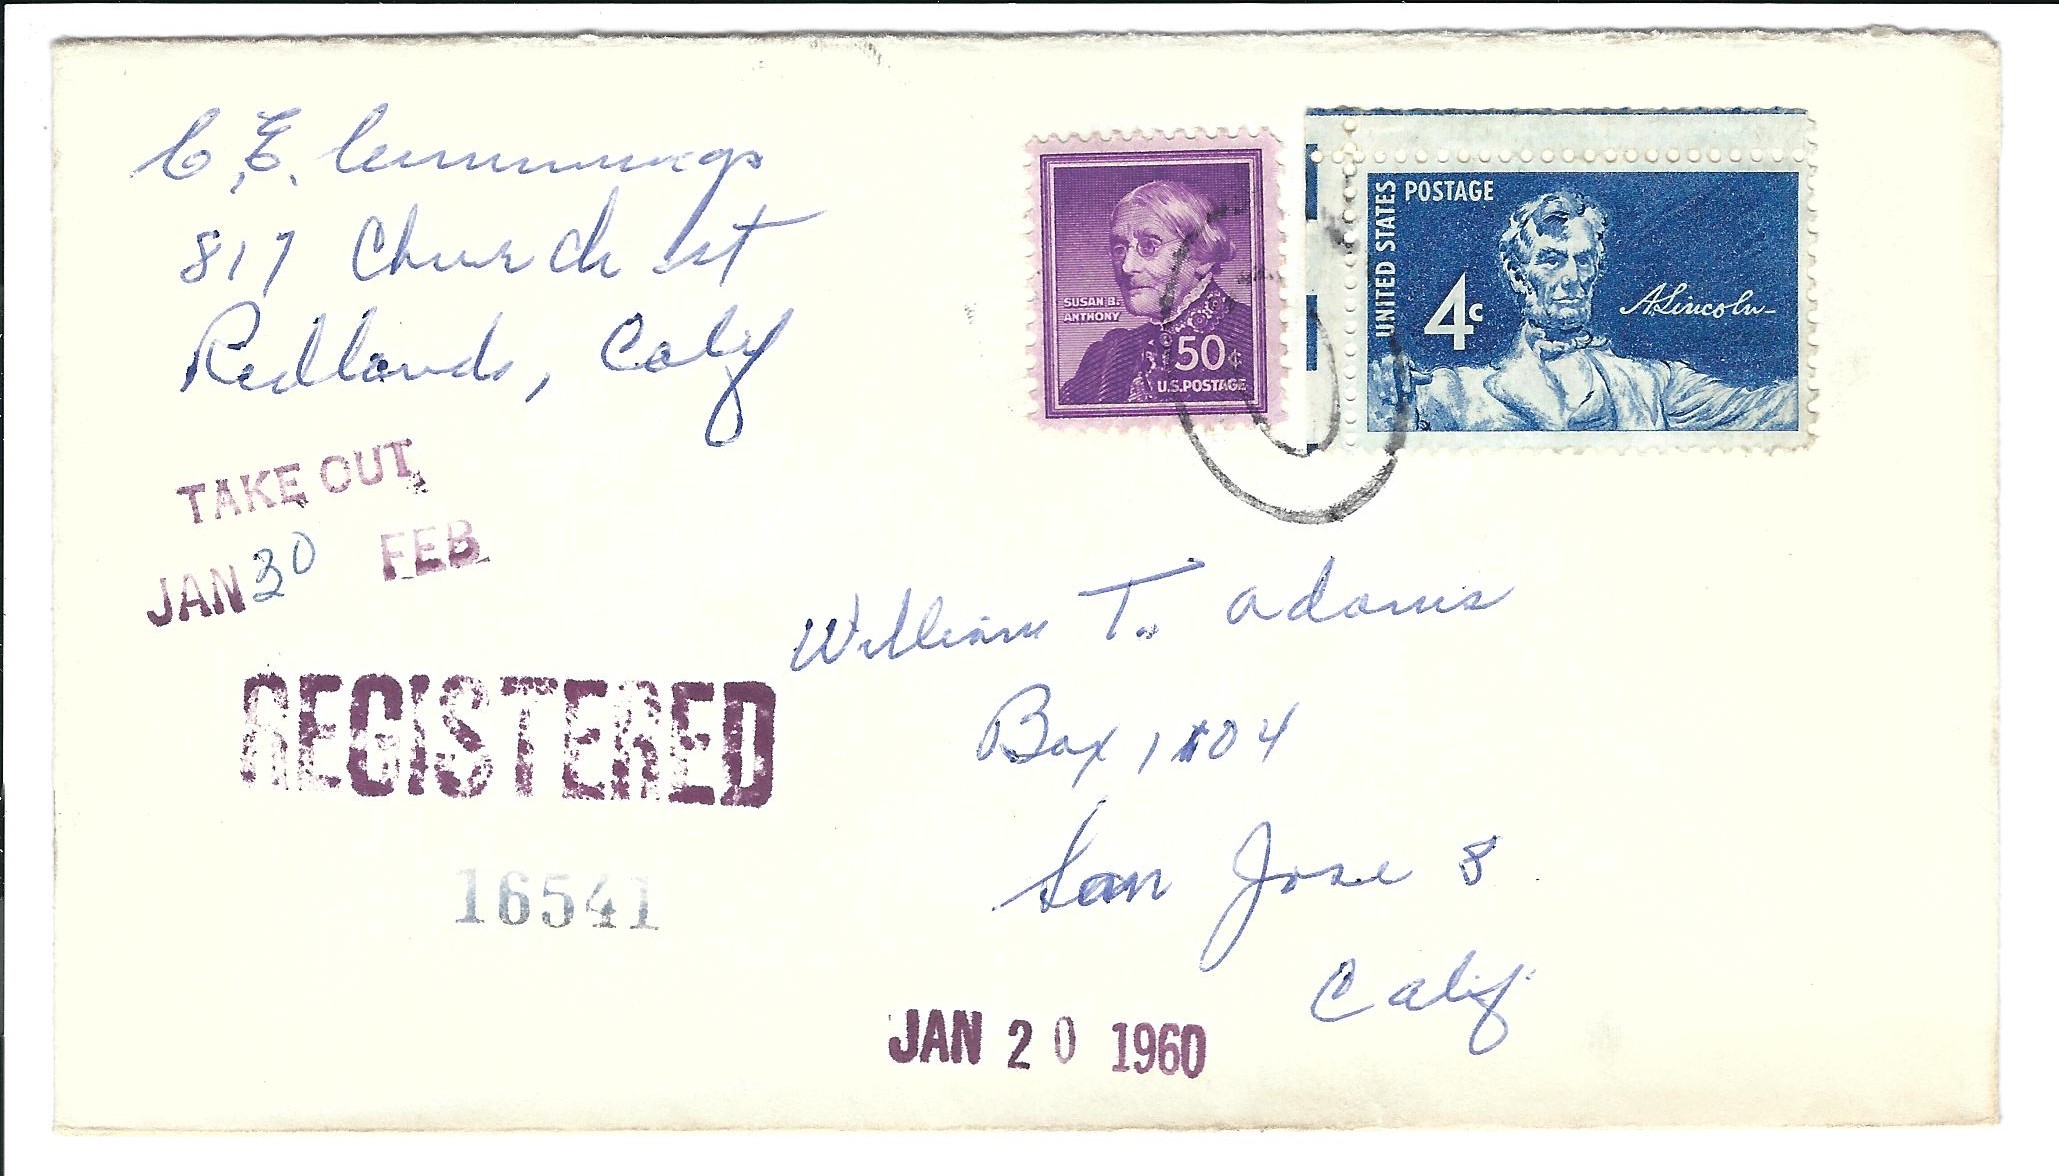 C. E. Cummings
817 Church St
Redlands, Calif
TAKE OUT
JAN 30 FEB
REGISTERED
16541
SUSAN B.
ANTHONY
50¢
U.S. POSTAGE
UNITED STATES POSTAGE
4c
A. Lincoln
William T. Adams
Box 1104
San Jose 8
Calif
JAN 20 1960